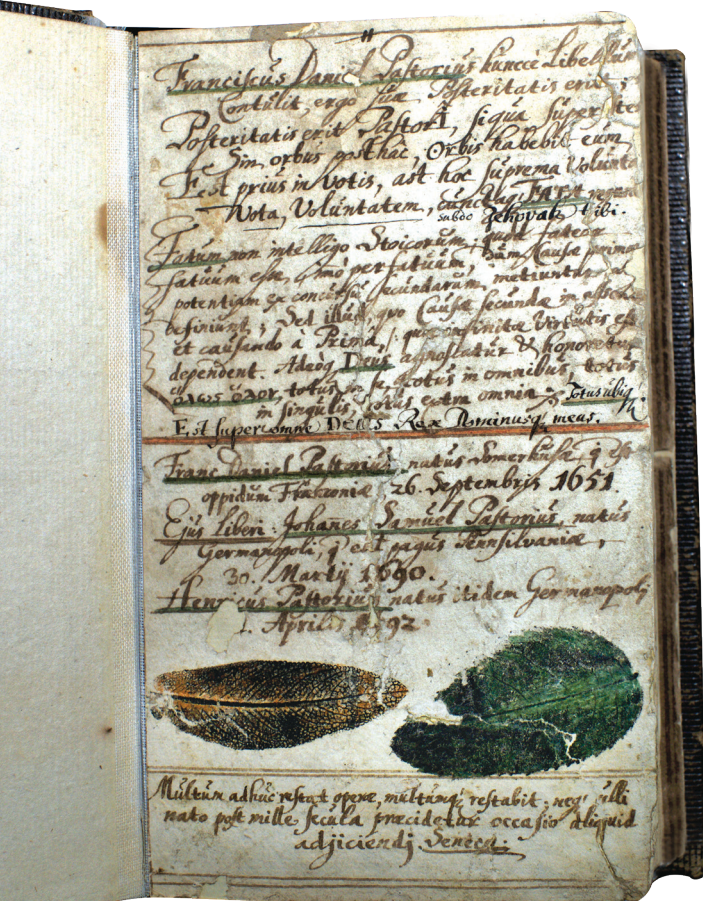 Franciscus Daniel Pastorius huncce Libellum
Contulit, ergo suæ Posteritatis erit;
Posteritatis erit Pastorî, siqua superste
Sin, orbus posthàc, Orbis habebit eum
Est prius in votis, ast hoc suprema Volunta
Vota, Voluntatem, cunctaq; FATA regenda
subdo Jehovah tibi.
Fatum non intelligo Stoicorum, quod fateor
fatuum esse, imò perfatuum, Dum Causæ primæ
potentiam ex concursu secundarum metiuntur
definiunt; Sed illud, quo Causæ secundæ in
et causando à Primâ, quæ infinitæ Virtutis est
dependent. Adeóq; Deus agnoscatur & honoretur
ὅλως ὅλον, totus in se, totus in omnibus, totus
in singulis, totus extra omnia, Totus ubiq;
Est super omne DEUS Rex Dominusq; meus.
Franc. Daniel Pastorius, natus Somerhusæ, q̃ est
oppidum Franconiæ 26. Septembris 1651.
Ejus liberi: Johanes Samuel Pastorius, natus
Germanopoli, q̃ est pagus Pennsilvaniæ,
30. Martij 1690.
Henricus Pastorius natus itidem Germanopoli
1. Aprilis 1692.
Multum adhuc restat operæ, multumq; restabit; neq; ulli
nato post mille secula præcidetur occasio aliquid
adjiciendj. Seneca.